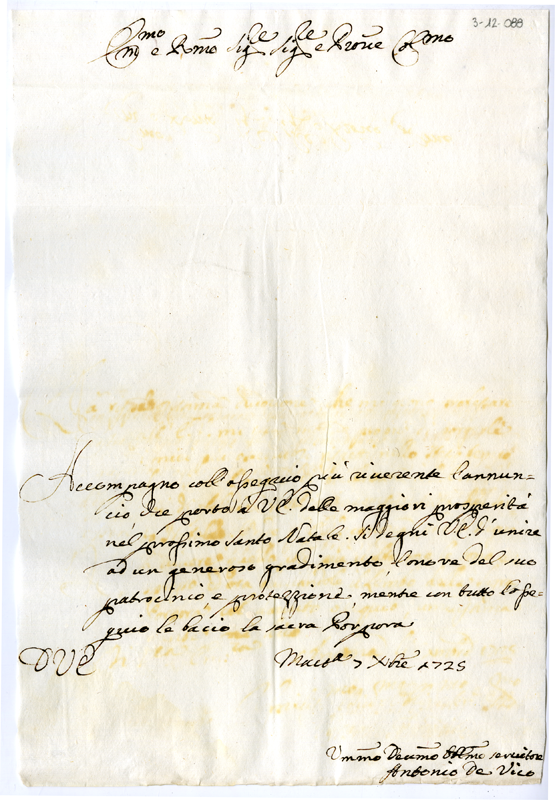 3-12-088
Emo e Rmo Sigre Sigre e Prone Colmo
Accompagno coll'ossequio più riverente l'annun=
cio che porto à VE. delle maggiori prosperità
nel prossimo Santo Natale. Si degni VE. d'unire
ad un generoso gradimento l'onore del suo
patrocinio è protezzione, mentre con tutto l'osse=
quio le bacio la sacra Porpora
DVE
Macta 7 Xbre 1725
Ummo Devmo Obbmo servitore
Antonio De Vico